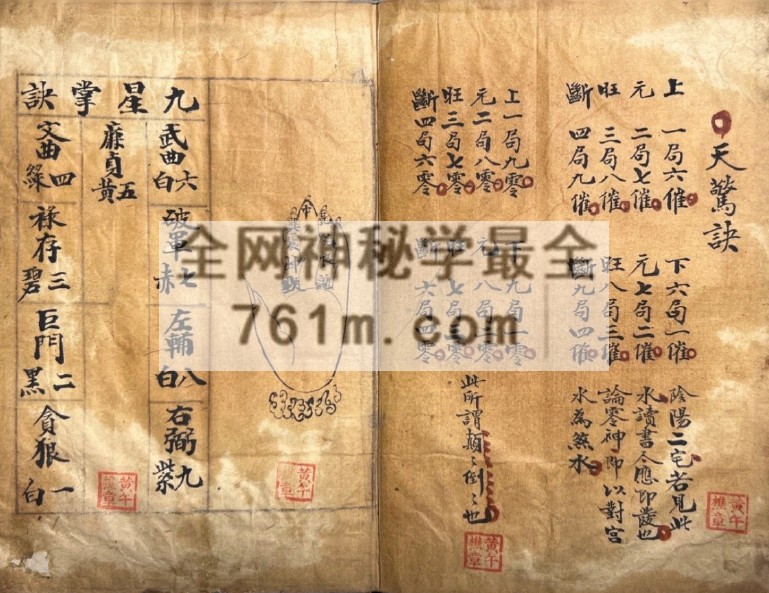 天驚訣
上一局六催
元二局七催
旺三局八催
斷四局九催
下六局一催
元七局二催
旺八局三催
斷九局四催
陰陽二宅若見此
水讀書人應即發也
論零神即以對宮
水為煞水
上一局九零
元二局八零
旺三局七零
斷四局六零
下九局一零
元八局二零
旺七局三零
斷六局四零
此所謂顛〻倒〻也
九星掌訣
武曲六白
破軍七赤
左輔八白
右弼九紫
廉貞五黃
文曲四綠
祿存三碧
巨門二黑
貪狼一白
全网神秘学最全
761m.com